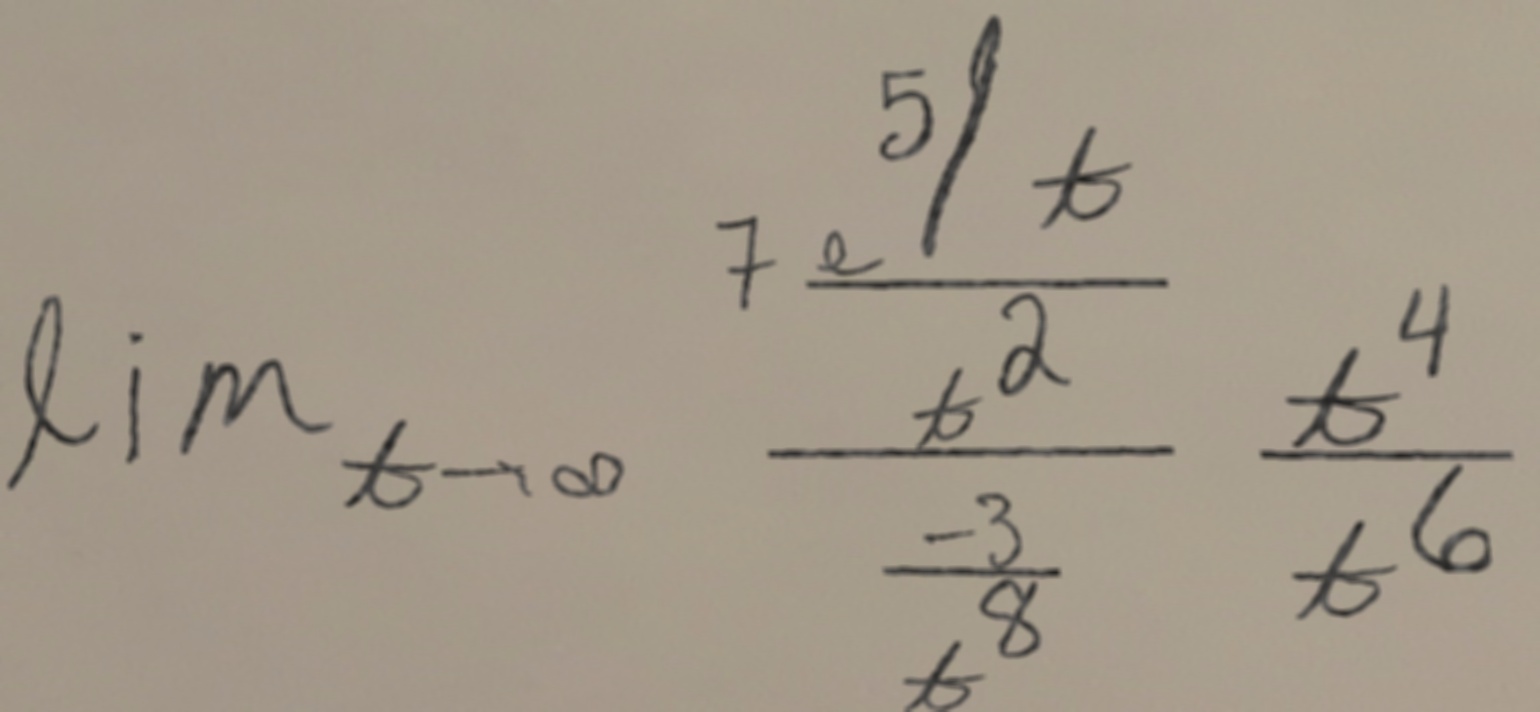 \lim_{t \to \infty} \frac{7 \frac{e^{5/t}}{t^2}}{\frac{-3}{t^8}} \frac{t^4}{t^6}